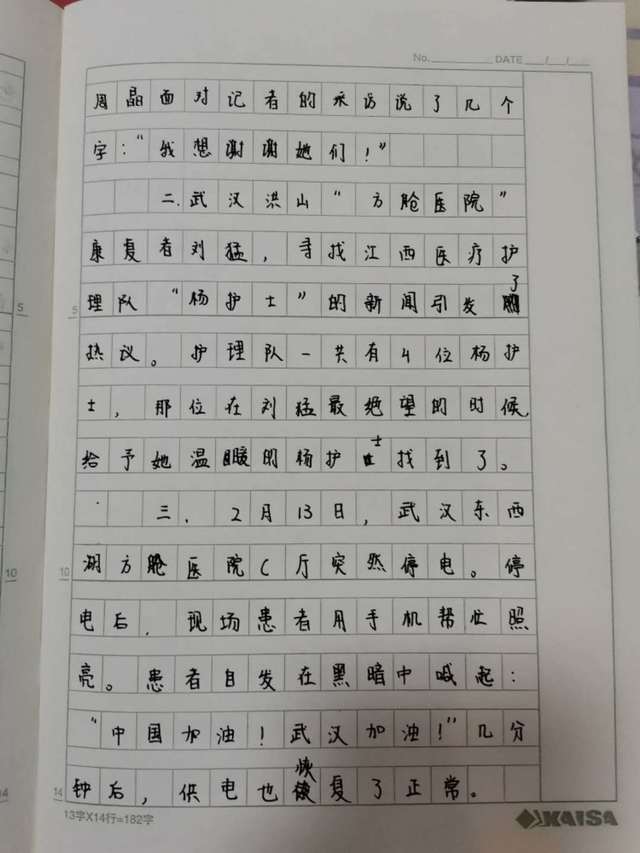 No. DATE / /
周晶面对记者的采访说了几个
字：“我想谢谢她们！”
二.武汉洪山“方舱医院”
康复者刘猛，寻找江西医疗护
理队“杨护士”的新闻引发了
热议。护理队一共有4位杨护
士，那位在刘猛最绝望的时候，
给予她温暖的杨护士找到了。
三．2月13日，武汉东西
湖方舱医院C厅突然停电。停
电后．现场患者用手机帮忙照
亮。患者自发在黑暗中喊起：
“中国加油！武汉加油！”几分
钟后，供电也恢复了正常。
5
5
10
10
14
14
13字X14行=182字
KAISA